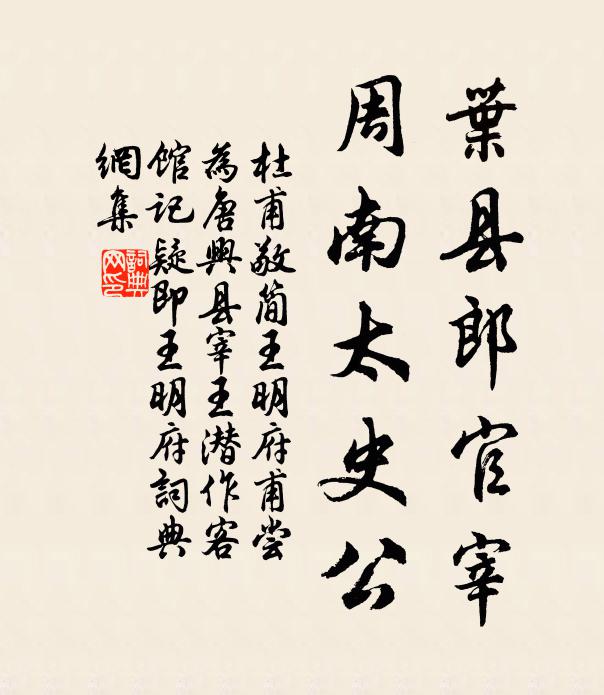 葉县郎官宰
周南太史公
杜甫敬简王明府甫尝
為唐興县宰王潜作客
馆记疑即王明府詞典
網集
詞典
网印